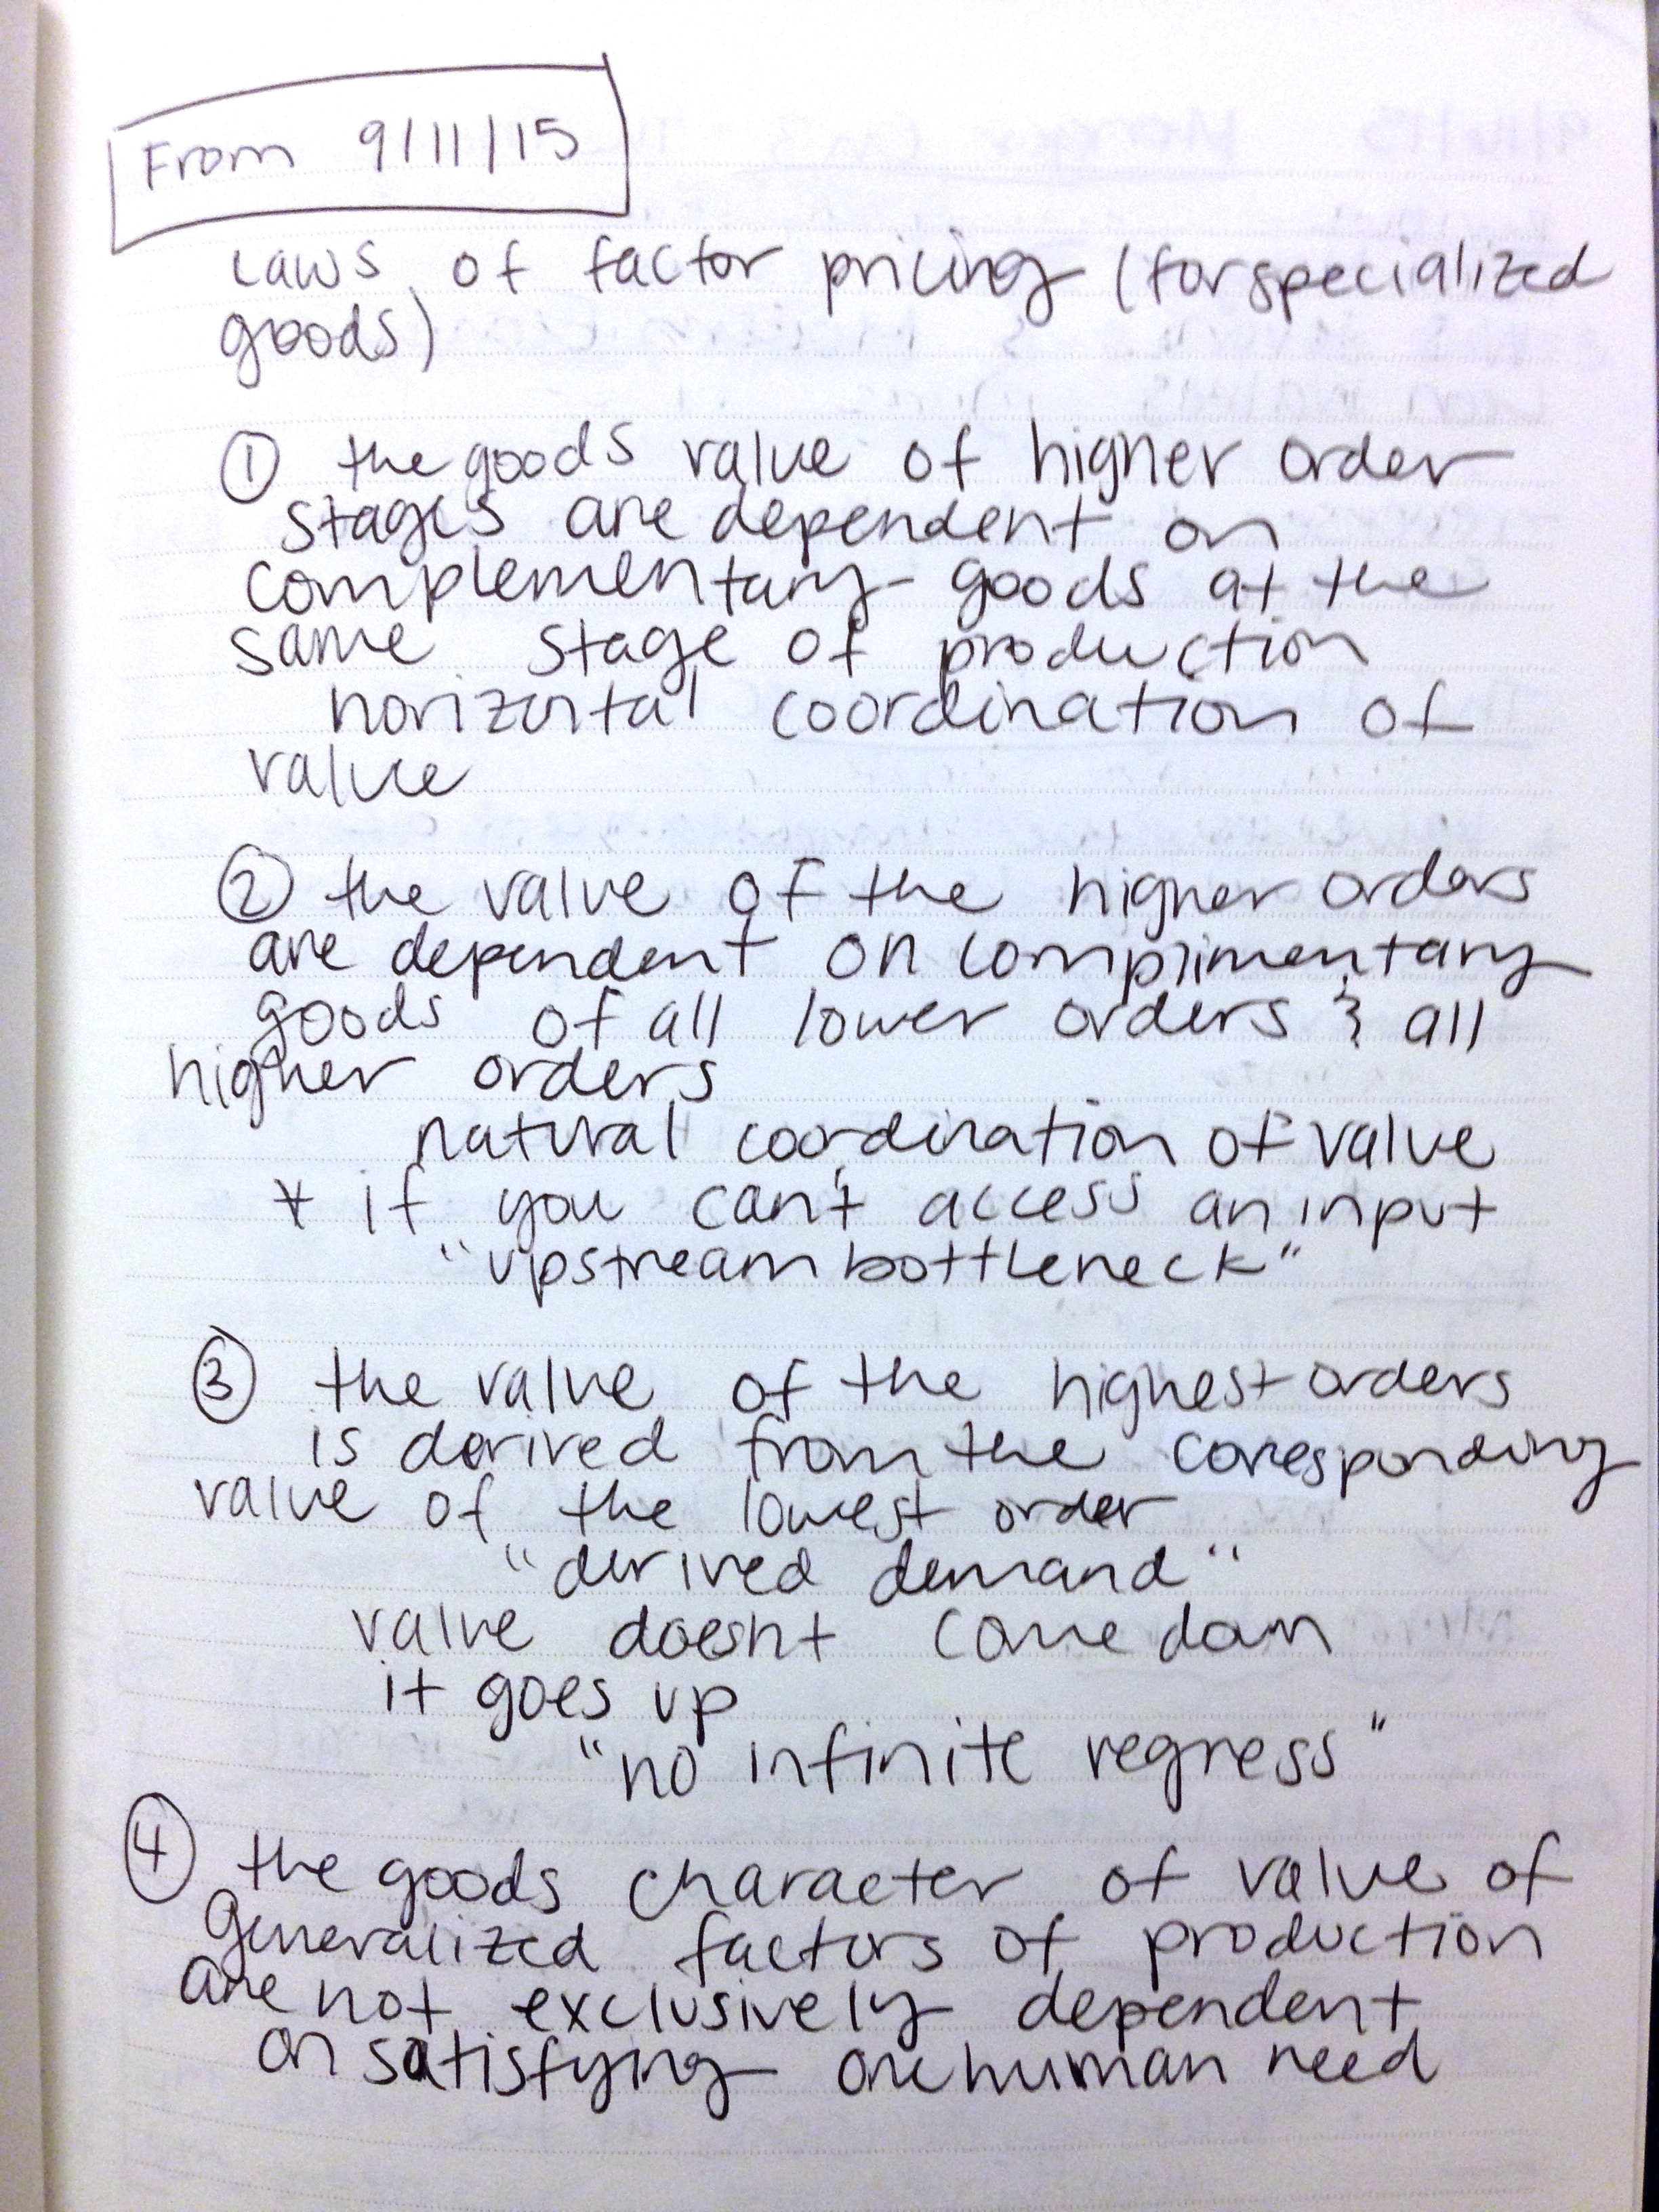 From 9/11/15
Laws of factor pricing (for specialized
goods)
① the goods value of higher order
stages are dependent on
complementary goods at the
same stage of production
horizontal coordination of
value
② the value of the higher orders
are dependent on complimentary
goods of all lower orders & all
higher orders
natural coordination of value
* if you can't access an input
"upstream bottleneck"
③ the value of the highest orders
is derived from the corresponding
value of the lowest order
"derived demand"
value doesnt come down
it goes up
"no infinite regress"
④ the goods character of value of
generalized factors of production
are not exclusively dependent
on satisfying one human need